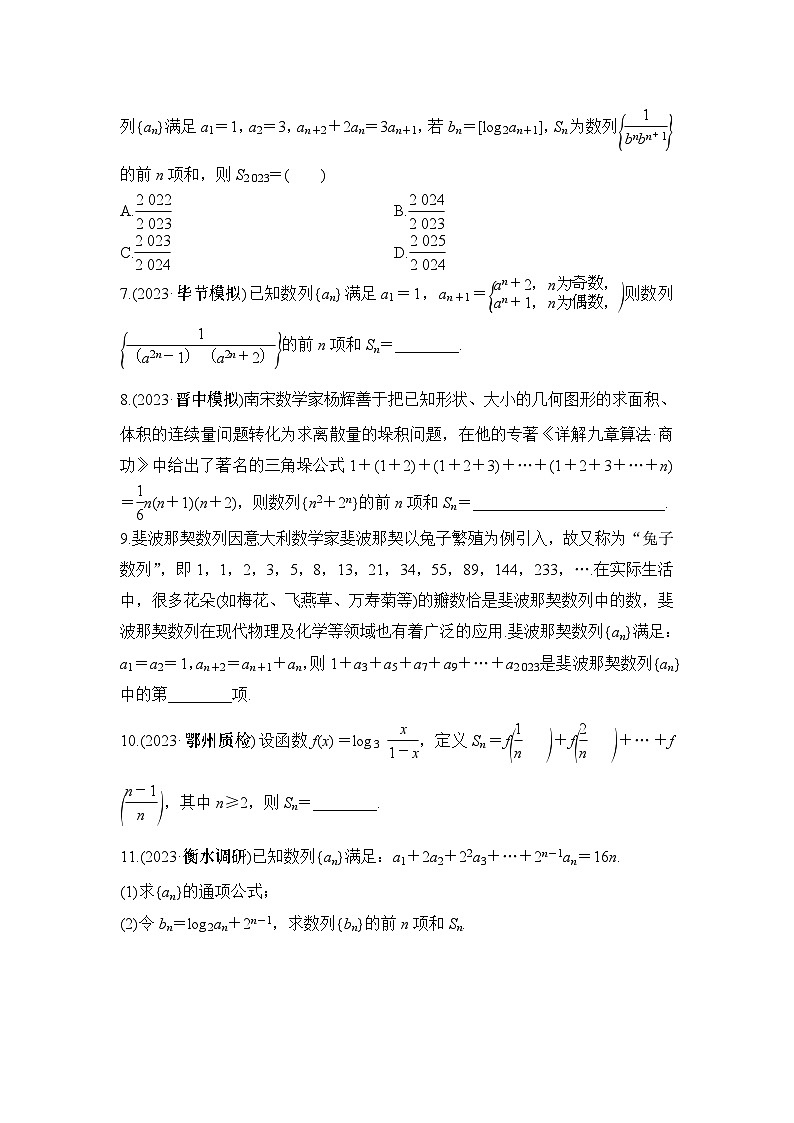 列{aₙ}满足 a₁＝1，a₂＝3，aₙ₊₂＋2aₙ＝3aₙ₊₁，若 bₙ＝[log₂aₙ₊₁]，Sₙ 为数列{1/(bⁿbⁿ⁺¹)}
的前 n 项和，则 S₂ ₀₂₃＝(　　)
A.2 022/2 023　B.2 024/2 023
C.2 023/2 024　D.2 025/2 024
7.(2023·毕节模拟)已知数列{aₙ}满足 a₁＝1，aₙ₊₁＝{aⁿ＋2，n为奇数，aⁿ＋1，n为偶数，)则数列
{1/(（a²ⁿ－1）（a²ⁿ＋2）)}的前 n 项和 Sₙ＝________.
8.(2023·晋中模拟)南宋数学家杨辉善于把已知形状、大小的几何图形的求面积、
体积的连续量问题转化为求离散量的垛积问题，在他的专著《详解九章算法·商
功》中给出了著名的三角垛公式 1＋(1＋2)＋(1＋2＋3)＋…＋(1＋2＋3＋…＋n)
＝1/6n(n＋1)(n＋2)，则数列{n²＋2ⁿ}的前 n 项和 Sₙ＝________________________.
9.斐波那契数列因意大利数学家斐波那契以兔子繁殖为例引入，故又称为“兔子
数列”，即 1，1，2，3，5，8，13，21，34，55，89，144，233，….在实际生活
中，很多花朵(如梅花、飞燕草、万寿菊等)的瓣数恰是斐波那契数列中的数，斐
波那契数列在现代物理及化学等领域也有着广泛的应用.斐波那契数列{aₙ}满足：
a₁＝a₂＝1，aₙ₊₂＝aₙ₊₁＋aₙ，则 1＋a₃＋a₅＋a₇＋a₉＋…＋a₂ ₀₂₃是斐波那契数列{aₙ}
中的第________项.
10.(2023·鄂州质检)设函数 f(x)＝log₃ x/(1－x)，定义 Sₙ＝f(1/n　)＋f(2/n　)＋…＋f
((n－1)/n)，其中 n≥2，则 Sₙ＝________.
11.(2023·衡水调研)已知数列{aₙ}满足：a₁＋2a₂＋2²a₃＋…＋2ⁿ⁻¹aₙ＝16n.
(1)求{aₙ}的通项公式；
(2)令 bₙ＝log₂aₙ＋2ⁿ⁻¹，求数列{bₙ}的前 n 项和 Sₙ.